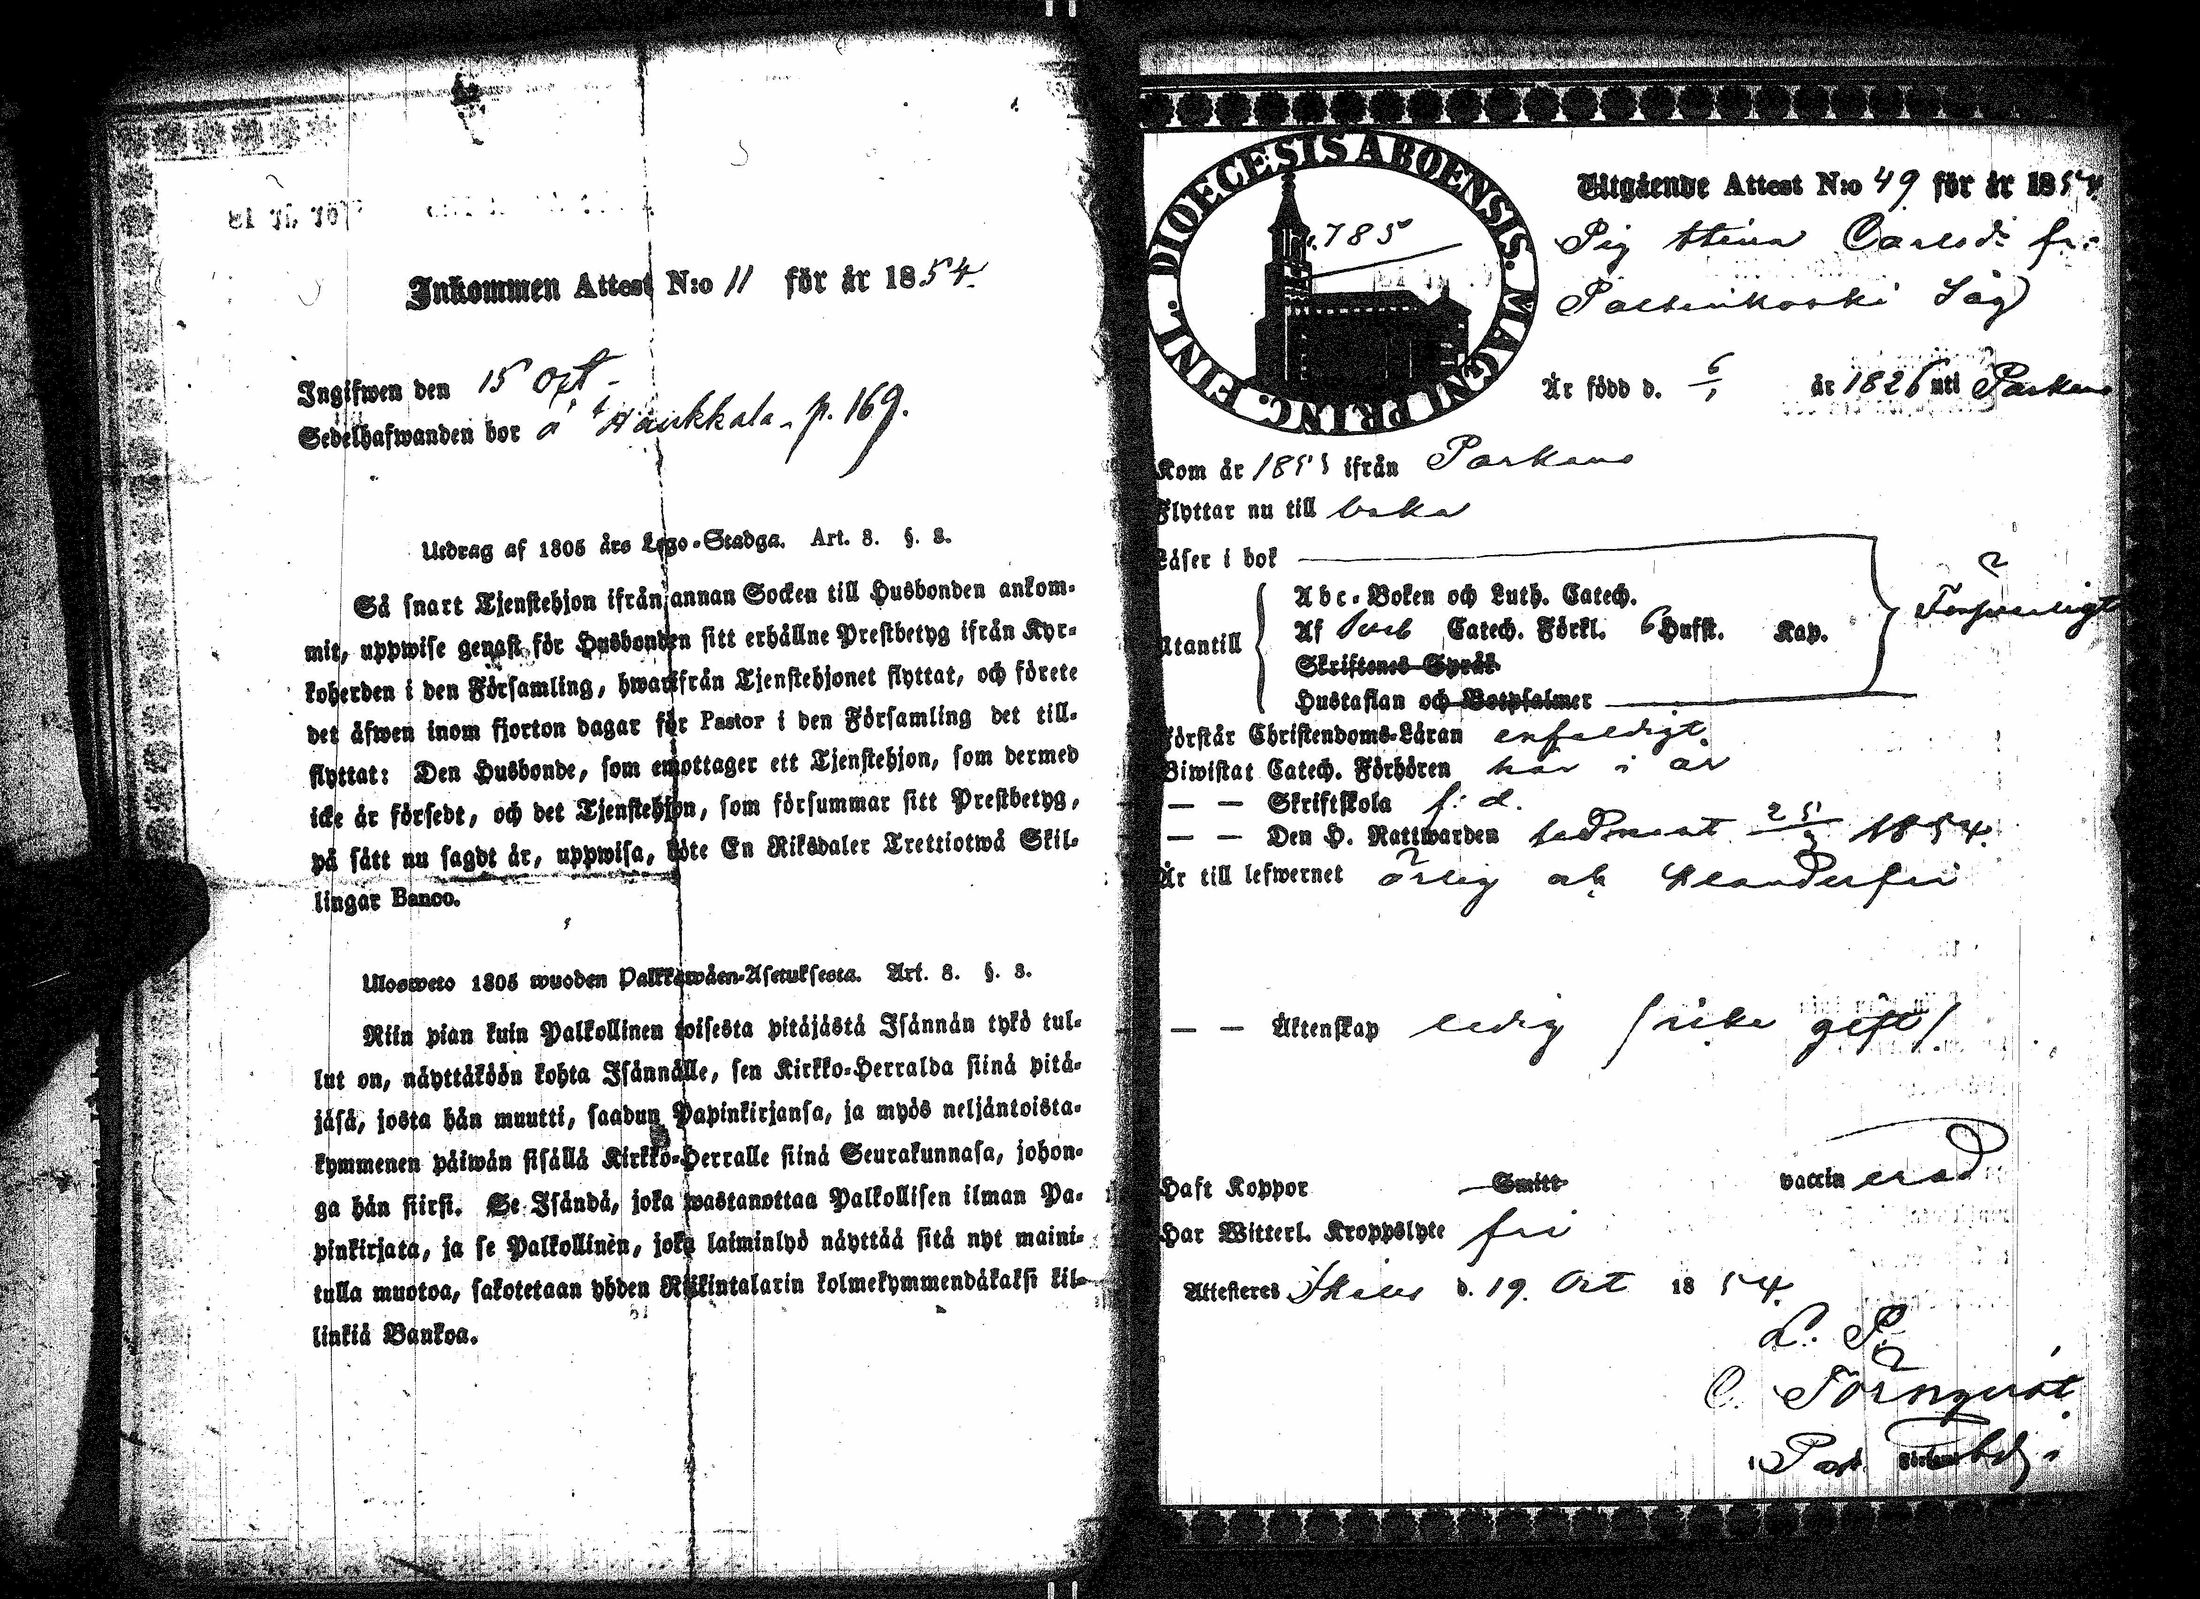 Inkommen Attest N:o 11 för år 1854.
Ingifwen den 15 Oct.
Sedelhafwanden bor å Haukkala p. 169.
Utdrag af 1805 års Lego-Stadga. Art. 8. §. 8.
Så snart Tjenstehjon ifrån annan Socken till Husbonden ankom-
mit, uppwise genast för Husbonden sitt erhållne Prestbetyg ifrån Kyr-
koherden i den Församling, hwarifrån Tjenstehjonet flyttat, och förete
det äfwen inom fjorton dagar för Pastor i den Församling det till-
flyttat: Den Husbonde, som emottager ett Tjenstehjon, som dermed
icke är försedt, och det Tjenstehjon, som försummar sitt Prestbetyg,
på sätt nu sagdt är, uppwisa, böte En Riksdaler Trettiotwå Skil-
lingar Banco.
Ulosweto 1805 wuoden Palkkawäen-Asetuksesta. Art. 8. §. 8.
Niin pian kuin Palkollinen toisesta pitäjästä Isännän tykö tul-
lut on, näyttäköön kohta Isännälle, sen Kirkko-Herralda siinä pitä-
jäsä, josta hän muutti, saadun Papinkirjansa, ja myös neljäntoista-
kymmenen päiwän sisällä Kirkko-Herralle siinä Seurakunnasa, johon-
ga hän siirsi. Se Isändä, joka wastanottaa Palkollisen ilman Pa-
pinkirjata, ja se Palkollinen, joka laiminlyö näyttää sitä nyt maini-
tulla muotoa, sakotetaan yhden Riikintalarin kolmekymmendäkaksi kil-
linkiä Bankoa.
DIOECESIS ABOENSIS. MAGNI PRINC. FINL.
785
Utgående Attest N:o 49 för år 1854.
Pig Stina Carlsd. fr.
Såg
Är född d. 6/1 år 1826 uti Parkano
Kom år 1853 ifrån Parkano
Flyttar nu till baka
Läser i bok
Abc-Boken och Luth. Catech.
Utantill Af Catech. Förkl. 6 Hufst. Kap.
Försvarligt
Skriftenes Språk
Hustaflan och Botpsalmer
Förstår Christendoms-Läran enfaldigt
Biwistat Catech. Förhören här i år
— — Skriftskola f. d.
— — Den H. Nattwarden sednast 25/3 1854.
Är till lefwernet ärlig och klanderfri
— — Äktenskap ledig (icke gift)
Haft Koppor Smitt vaccinerad
Har Witterl. Kroppslyte fri
Attesteres d. 19. Oct 1854.
C. Törnqvist